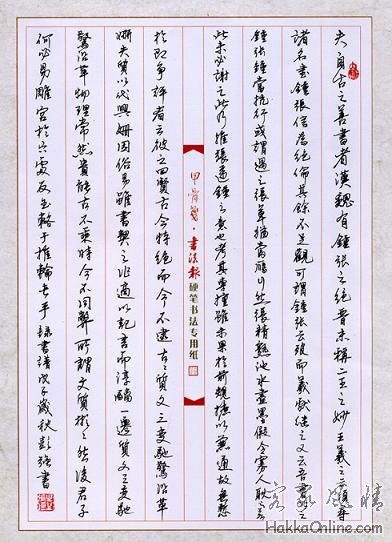 夫自古之善書者漢魏有鍾張之絕晉末稱二王之妙王羲之云頃尋
諸名書鍾張信為絕倫其餘不足觀可謂鍾張云沒而羲獻繼之又云吾書比之
鍾張鍾當抗行或謂過之張草猶當雁行然張精熟池水盡墨假令寡人耽之若
此未必謝之此乃推張邁鍾之意也考其專擅雖未果於前規摭以兼通故無慙
甲骨箋·書法報硬笔书法专用纸
於即事評者云彼之四賢古今特絕而今不逮古〻質文三變馳騖沿革
妍夫質以代興妍因俗易雖書契之作適以記言而淳醨一遷質文三變馳
騖沿革物理常然貴能古不乖時今不同弊所謂文質彬〻然後君子
何必易雕宮於穴處反玉輅于椎輪者乎錄書譜戊子歲秋彭強書
客家风情
HakkaOnline.com